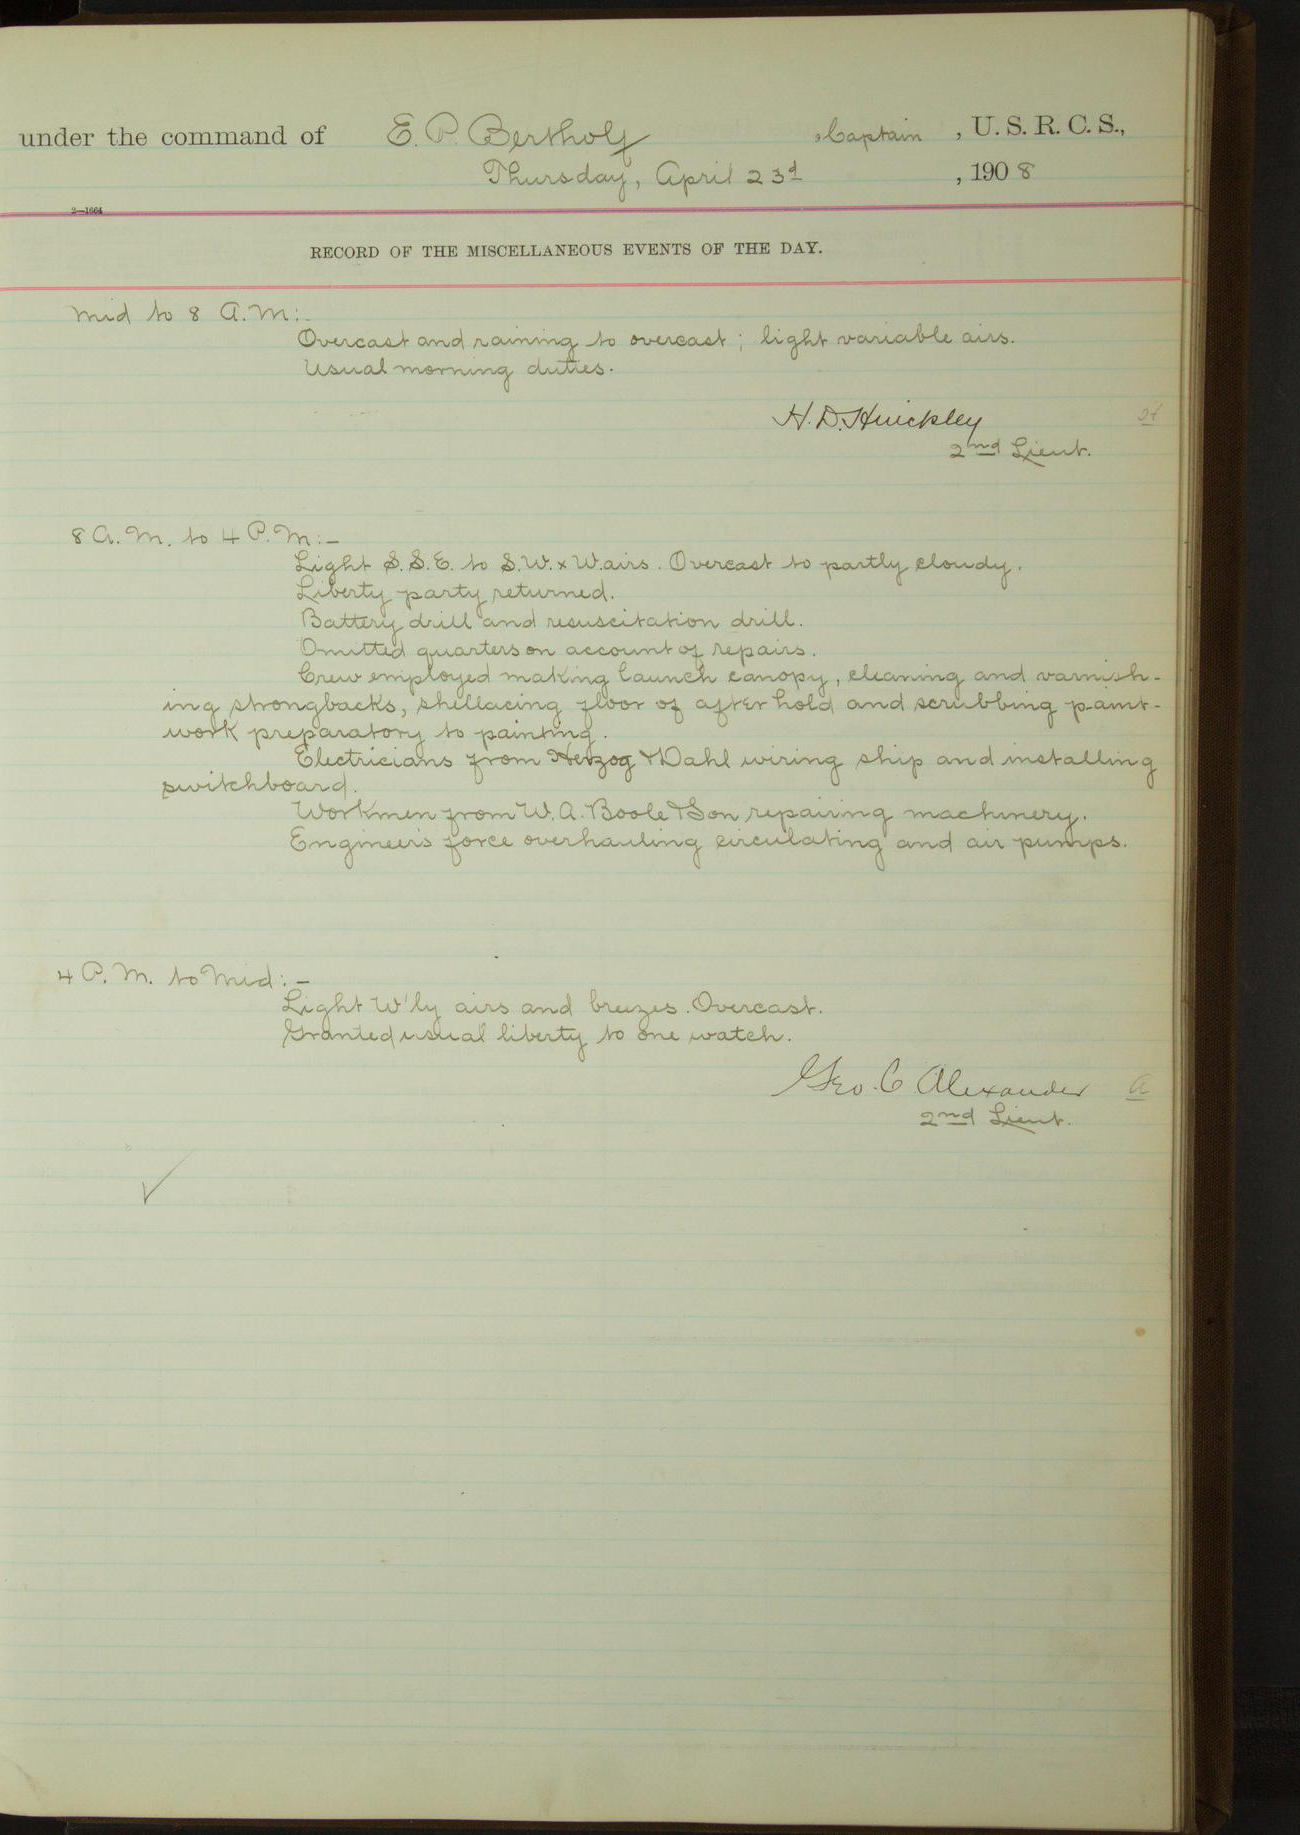 under the command of E. P. Bertholf, Captain, U. S. R. C. S.,
Thursday, April 23d, 1908
2—1664
RECORD OF THE MISCELLANEOUS EVENTS OF THE DAY.
Mid to 8 A.M:-
Overcast and raining to overcast; light variable airs.
Usual morning duties.
H. D. Hinckley
2nd Lieut.
8 A.M. to 4 P.M:-
Light S.S.E. to S.W. x W. airs. Overcast to partly cloudy.
Liberty party returned.
Battery drill and resuscitation drill.
Omitted quarters on account of repairs.
Crew employed making launch canopy, cleaning and varnish-
ing strongbacks, shellacing floor of after hold and scrubbing paint-
work preparatory to painting.
Electricians from Herzog & Dahl wiring ship and installing
switchboard.
Workmen from W. A. Boole & Son repairing machinery.
Engineer's force overhauling circulating and air pumps.
4 P.M. to Mid:-
Light W'ly airs and breezes. Overcast.
Granted usual liberty to one watch.
Geo. C. Alexander a
2nd Lieut.